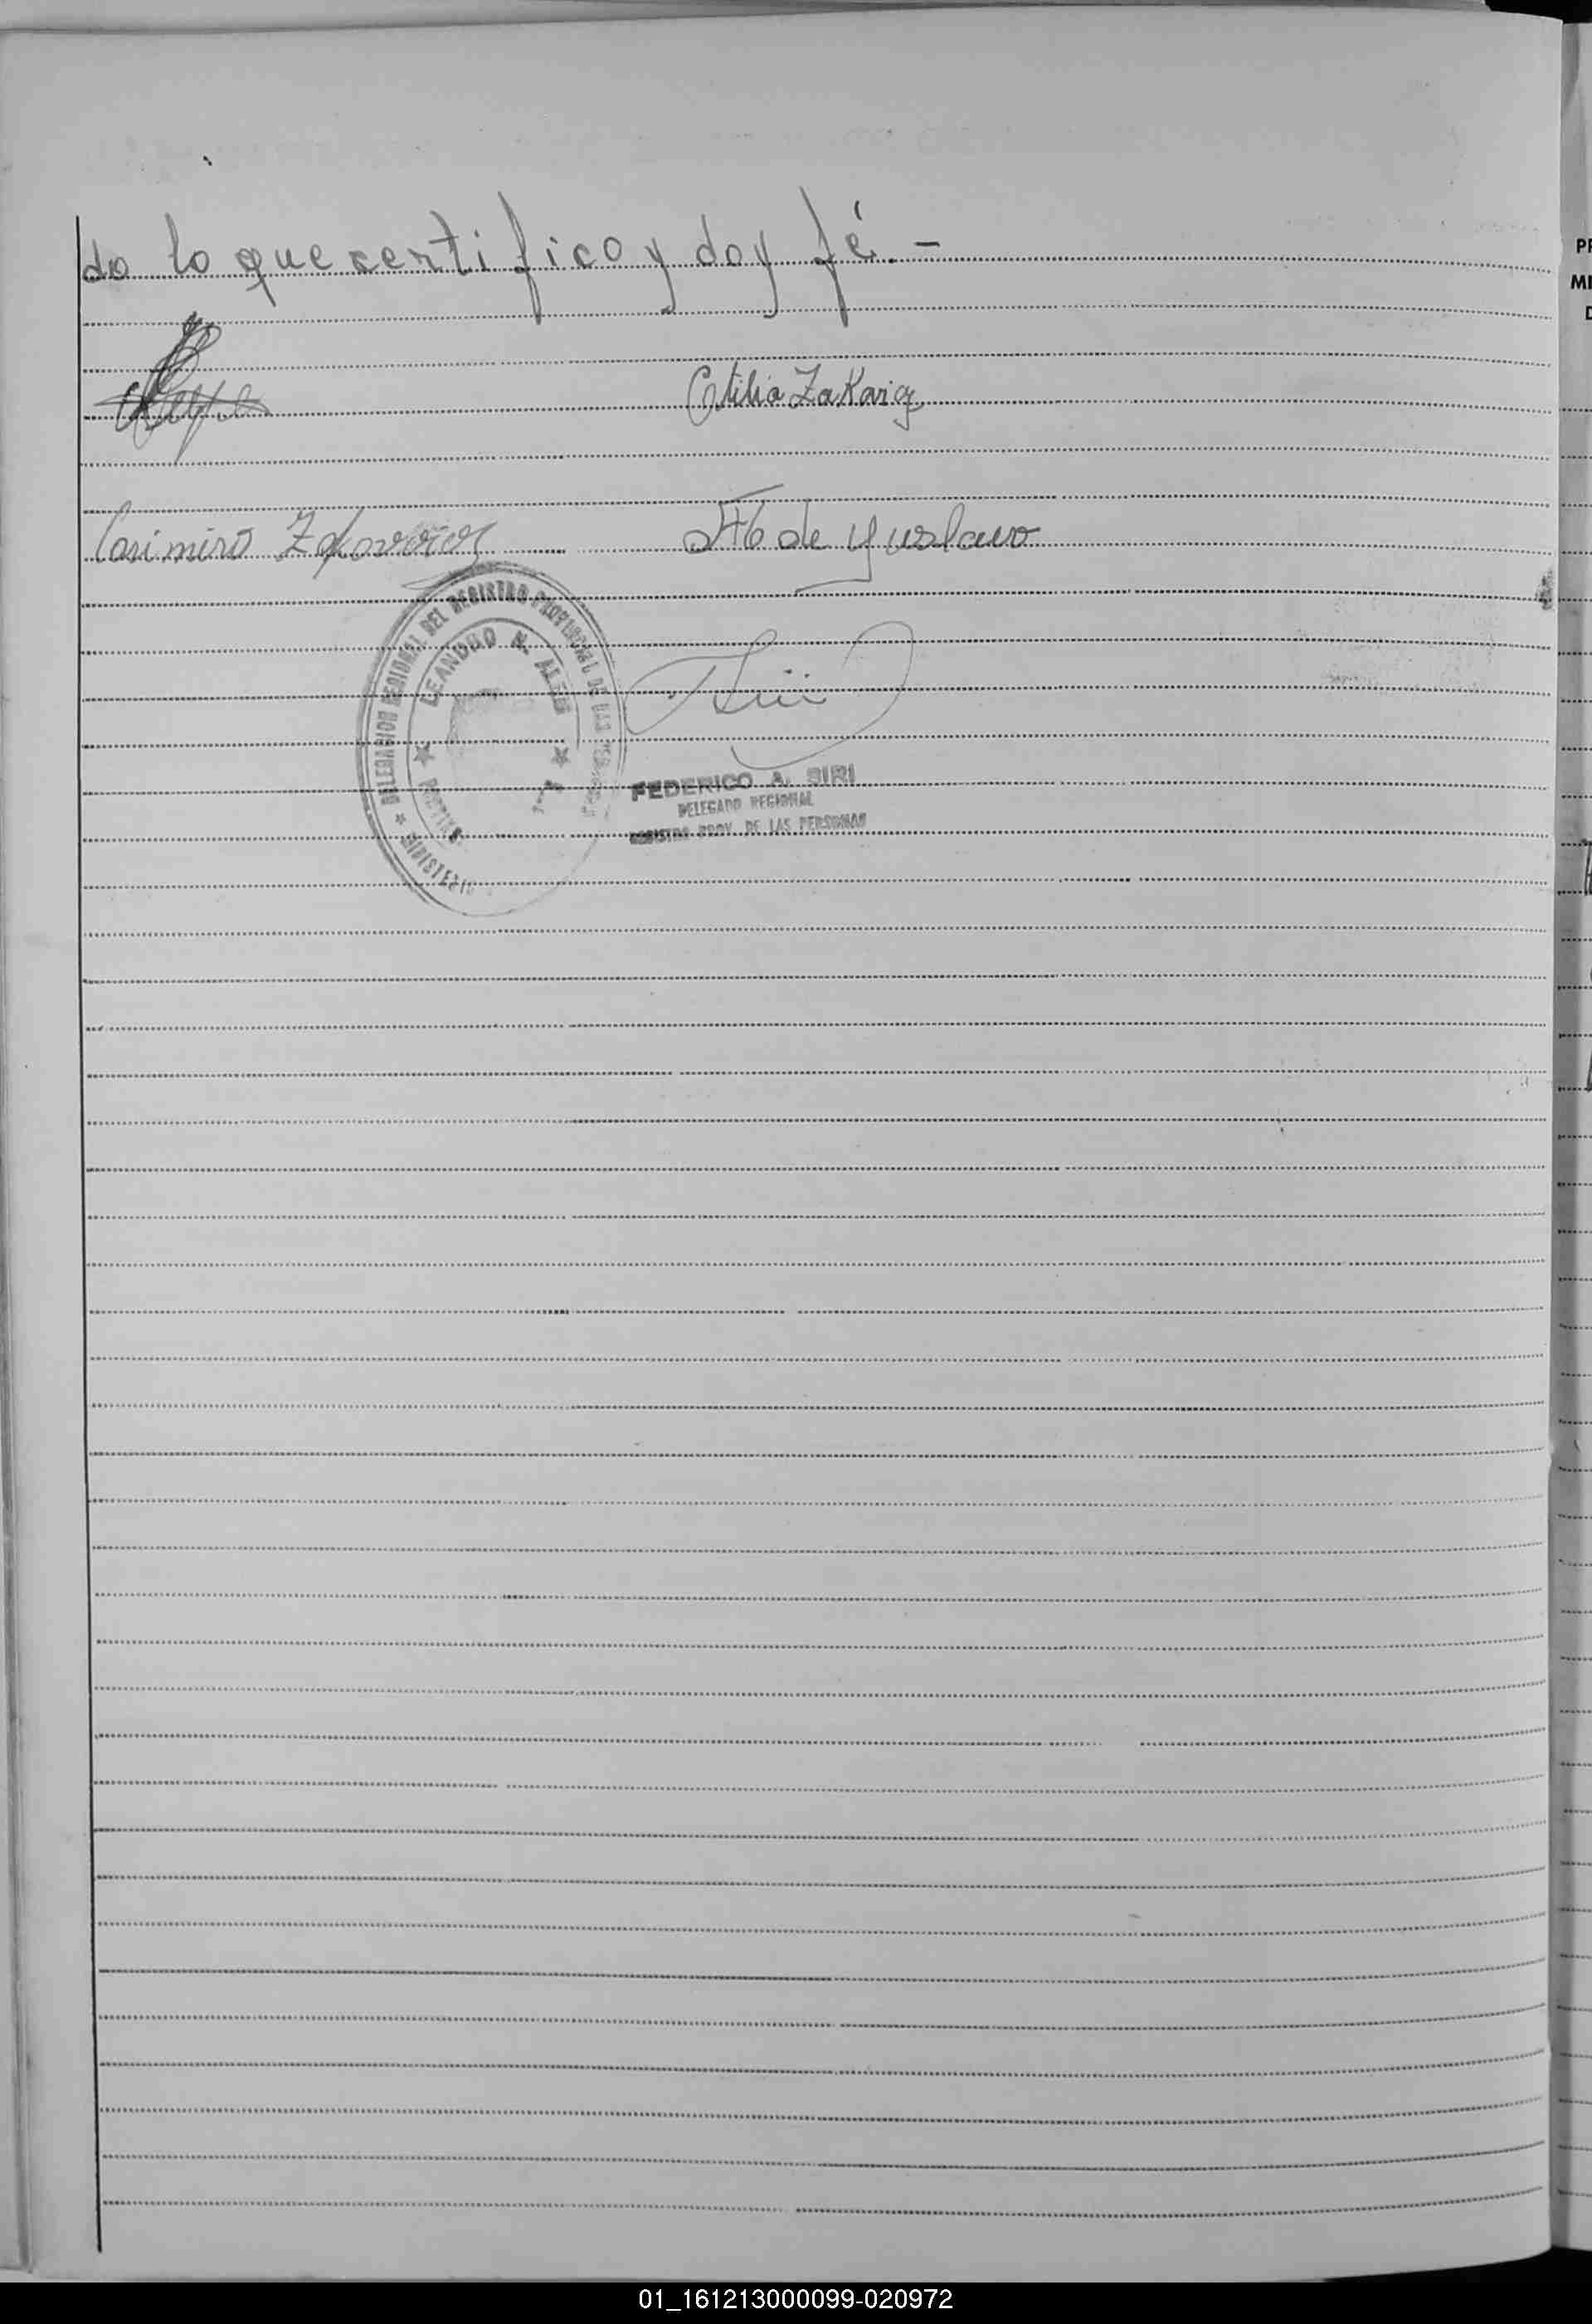 do lo que certifico y doy fé.-
Otilia Zakavicz
Casimiro Zakovviez
de yuslavo
DELEGACION REGIONAL DEL REGISTRO PROVINCIAL DE LAS PERSONAS
LEANDRO N. ALEM
FEDERICO A. SIRI
DELEGADO REGIONAL
REGISTRO PROV. DE LAS PERSONAS
PR
MI
D
01_161213000099-020972